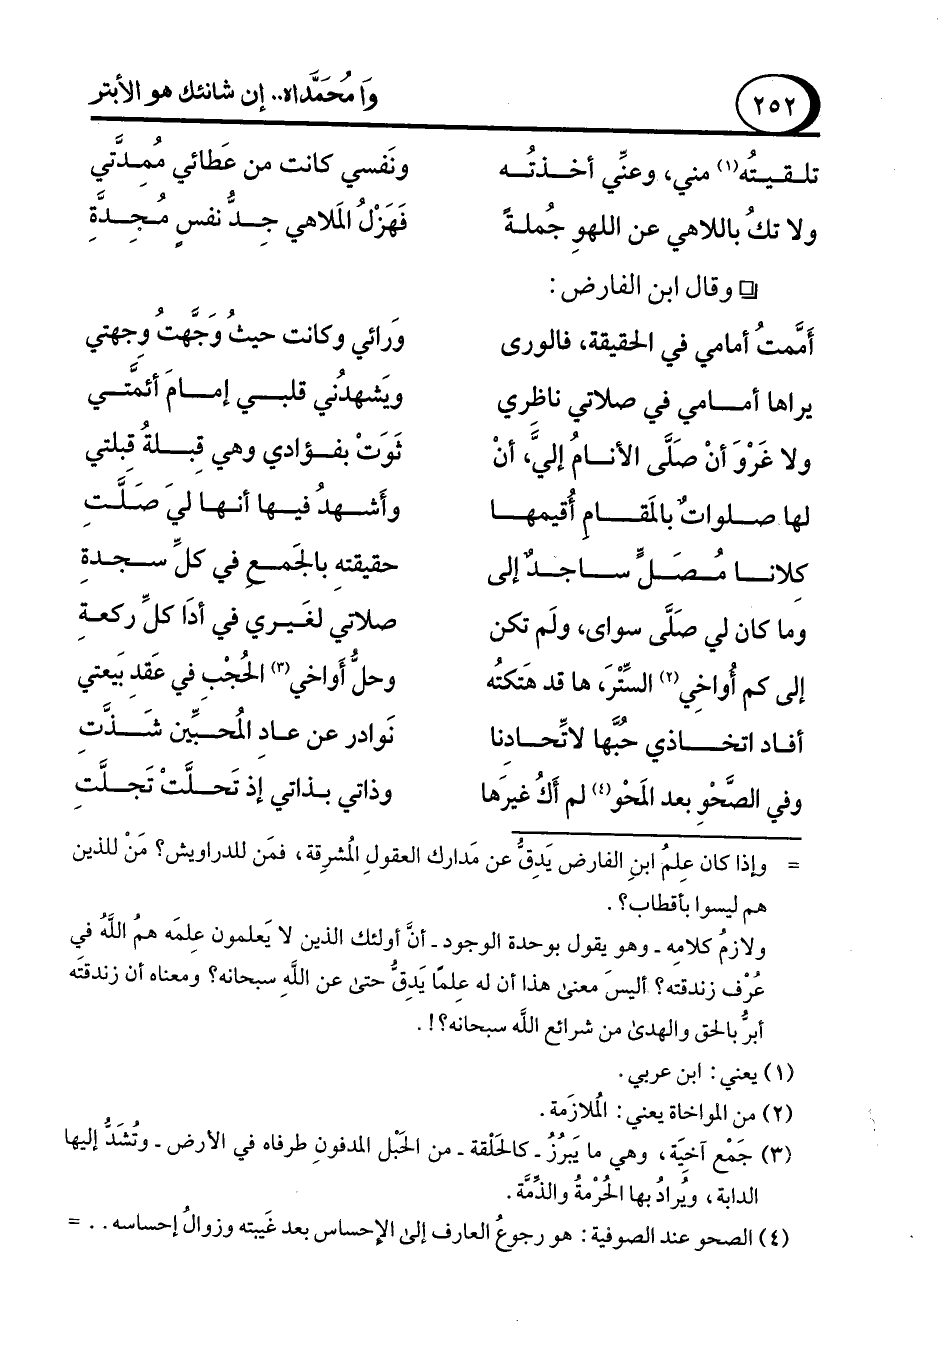 ٢٥٢ وَا مُحَمَّدَاه.. إن شانئك هو الأبتر
تلـقـيـتُه(١) مني، وعنِّي أخـــذتُـــه ونَفسي كانت من عَطائي مُمِـدَّتي
ولا تكُ باللاهي عن اللهوِ جُملـةً فَهَزْلُ المَلاهي جِـــدُّ نفسٍ مُـجِـــدَّة
❏ وقال ابن الفارض:
أَمَّمتُ أمامي في الحقيقة، فالورى وَرائي وكانت حيثُ وَجَّهتُ وِجهتي
يراها أمـــامي في صلاتي ناظري ويَشهدُني قلبـــي إمـــامَ أئمَّتـــي
ولا غَرْوَ أنْ صَلَّى الأنـــامُ إليَّ، أنْ ثَوَتْ بفـــؤادي وهي قِبـــلةُ قبلتي
لها صـــلواتٌ بالمَقـــامِ أُقيمُهـــا وأَشـــهدُ فيـــها أنـــها ليَ صَـــلَّـــتِ
كلانـــا مُـــصَـــلٍّ ســـاجـــدٌ إلى حقيقته بالجَمـــعِ في كلِّ ســـجدةِ
وما كان لي صلَّى سواى، ولَم تكن صلاتي لغَيـــري في أدَا كلِّ ركعـةِ
إلى كم أُواخي(٢) السِّتْرَ، ها قد هَتَكتُه وحلُّ أَواخي(٣) الحُجْبِ في عَقدِ بَيعتي
أفـاد اتخـــاذي حُبَّها لاتِّحـــادنا نَوادر عن عـاد المُحـــبِّين شَـــذَّتِ
وفي الصَّحْوِ بعد المَحْوِ(٤) لم أَكُ غيرَها وذاتي بـذاتي إذ تَحـــلَّتْ تَجـــلَّتِ
= وإذا كان عِلمُ ابنِ الفارض يَدقُّ عن مَدارك العقولِ المُشرقة، فمَن للدراويش؟ مَنْ للذين
هم ليسوا بأقطاب؟.
ولازمُ كلامه ـ وهو يقول بوحدة الوجود ـ أنَّ أولئك الذين لا يَعلمون علمَه همُ اللَّهُ في
عُرْف زندقته؟ أليسَ معنىٰ هذا أن له عِلمًا يَدقُّ حتىٰ عن اللَّهِ سبحانه؟ ومعناه أن زندقتَه
أبرُّ بالحق والهدىٰ من شرائع اللَّه سبحانه؟!.
(١) يعني: ابن عربي.
(٢) من المواخاة يعني: المُلازَمة.
(٣) جَمْع آخيَة، وهي ما يَبرُزُ ـ كالحَلْقة ـ من الحَبْل المدفونِ طرفاه في الأرض ـ وتُشَدُّ إليها
الدابة، ويُرادُ بها الحُرْمةُ والذِّمَّة.
(٤) الصحو عند الصوفية: هو رجوعُ العارف إلىٰ الإحساس بعد غَيبته وزوالُ إحساسه.. =